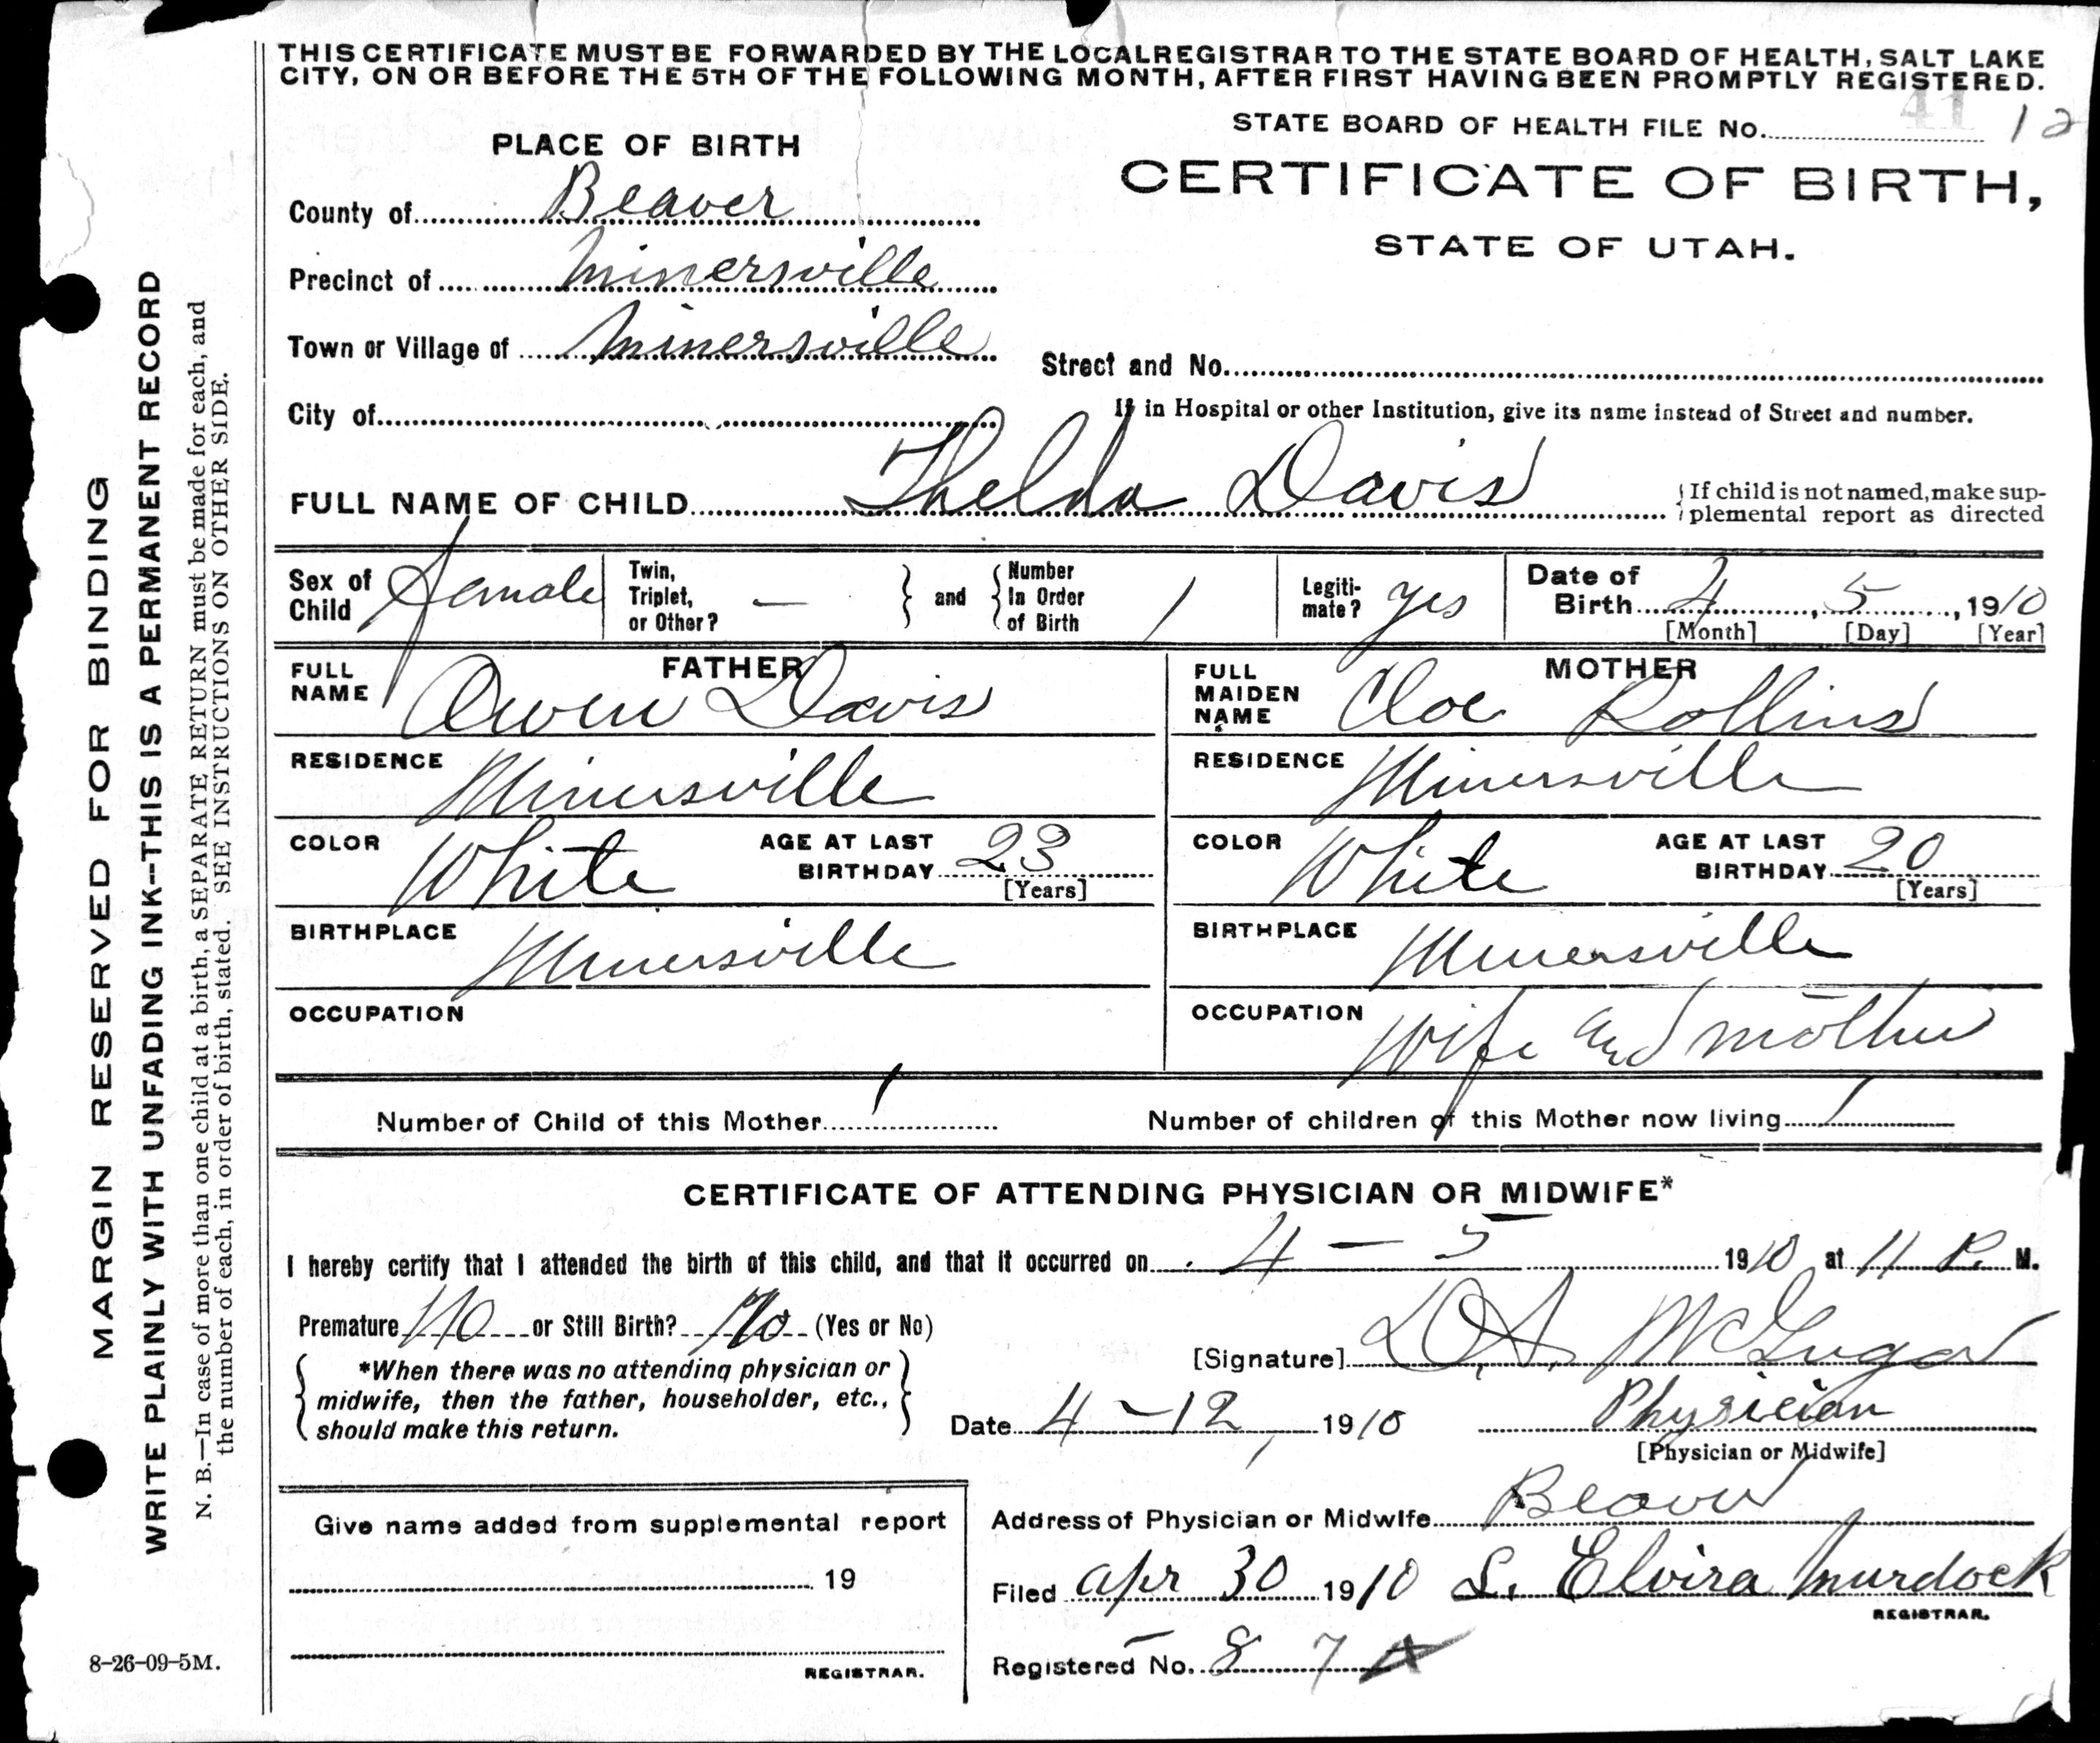 THIS CERTIFICATE MUST BE FORWARDED BY THE LOCAL REGISTRAR TO THE STATE BOARD OF HEALTH, SALT LAKE
CITY, ON OR BEFORE THE 5TH OF THE FOLLOWING MONTH, AFTER FIRST HAVING BEEN PROMPTLY REGISTERED.
41
STATE BOARD OF HEALTH FILE No. 12
PLACE OF BIRTH
CERTIFICATE OF BIRTH,
STATE OF UTAH.
County of Beaver
Precinct of Minersville
Town or Village of Minersville
Street and No.
City of
If in Hospital or other Institution, give its name instead of Street and number.
FULL NAME OF CHILD Thelda Davis
If child is not named, make sup-
plemental report as directed
Sex of Child Female
Twin, Triplet, or Other? —
and
Number In Order of Birth 1
Legiti-mate? yes
Date of Birth 4, 5, 1910
[Month] [Day] [Year]
FATHER
FULL NAME Owen Davis
RESIDENCE Minersville
COLOR White AGE AT LAST BIRTHDAY 23
[Years]
BIRTHPLACE Minersville
OCCUPATION
MOTHER
FULL MAIDEN NAME Cloe Rollins
RESIDENCE Minersville
COLOR White AGE AT LAST BIRTHDAY 20
[Years]
BIRTHPLACE Minersville
OCCUPATION Wife and mother
Number of Child of this Mother 1
Number of children of this Mother now living 1
CERTIFICATE OF ATTENDING PHYSICIAN OR MIDWIFE*
I hereby certify that I attended the birth of this child, and that it occurred on 4 – 5 1910 at 11 P. M.
Premature No or Still Birth? No (Yes or No)
*When there was no attending physician or
midwife, then the father, householder, etc.,
should make this return.
[Signature]
Date 4 – 12, 1910
Physician
[Physician or Midwife]
Give name added from supplemental report
19
REGISTRAR.
Address of Physician or Midwife Beaver
Filed Apr 30 1910 S. Elvira Murdock
REGISTRAR.
Registered No. 8 7
MARGIN RESERVED FOR BINDING
WRITE PLAINLY WITH UNFADING INK--THIS IS A PERMANENT RECORD
N. B.—In case of more than one child at a birth, a SEPARATE RETURN must be made for each, and
the number of each, in order of birth, stated. SEE INSTRUCTIONS ON OTHER SIDE.
8-26-09-5M.